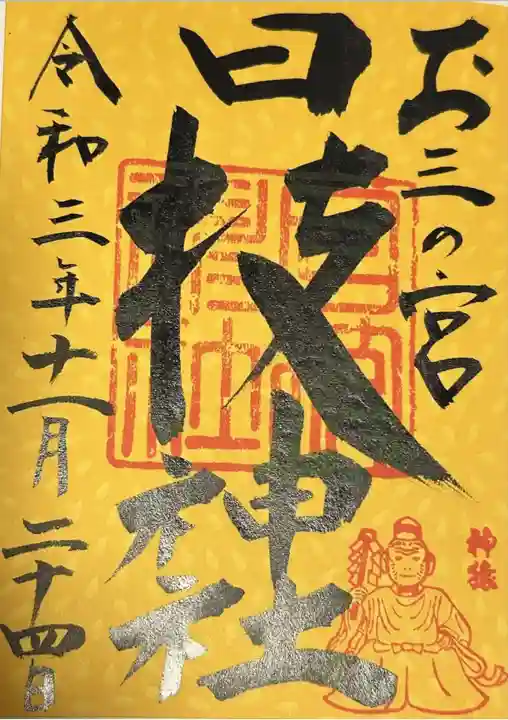 お三の宮
日枝神社
令和三年十一月二十四日
神猿